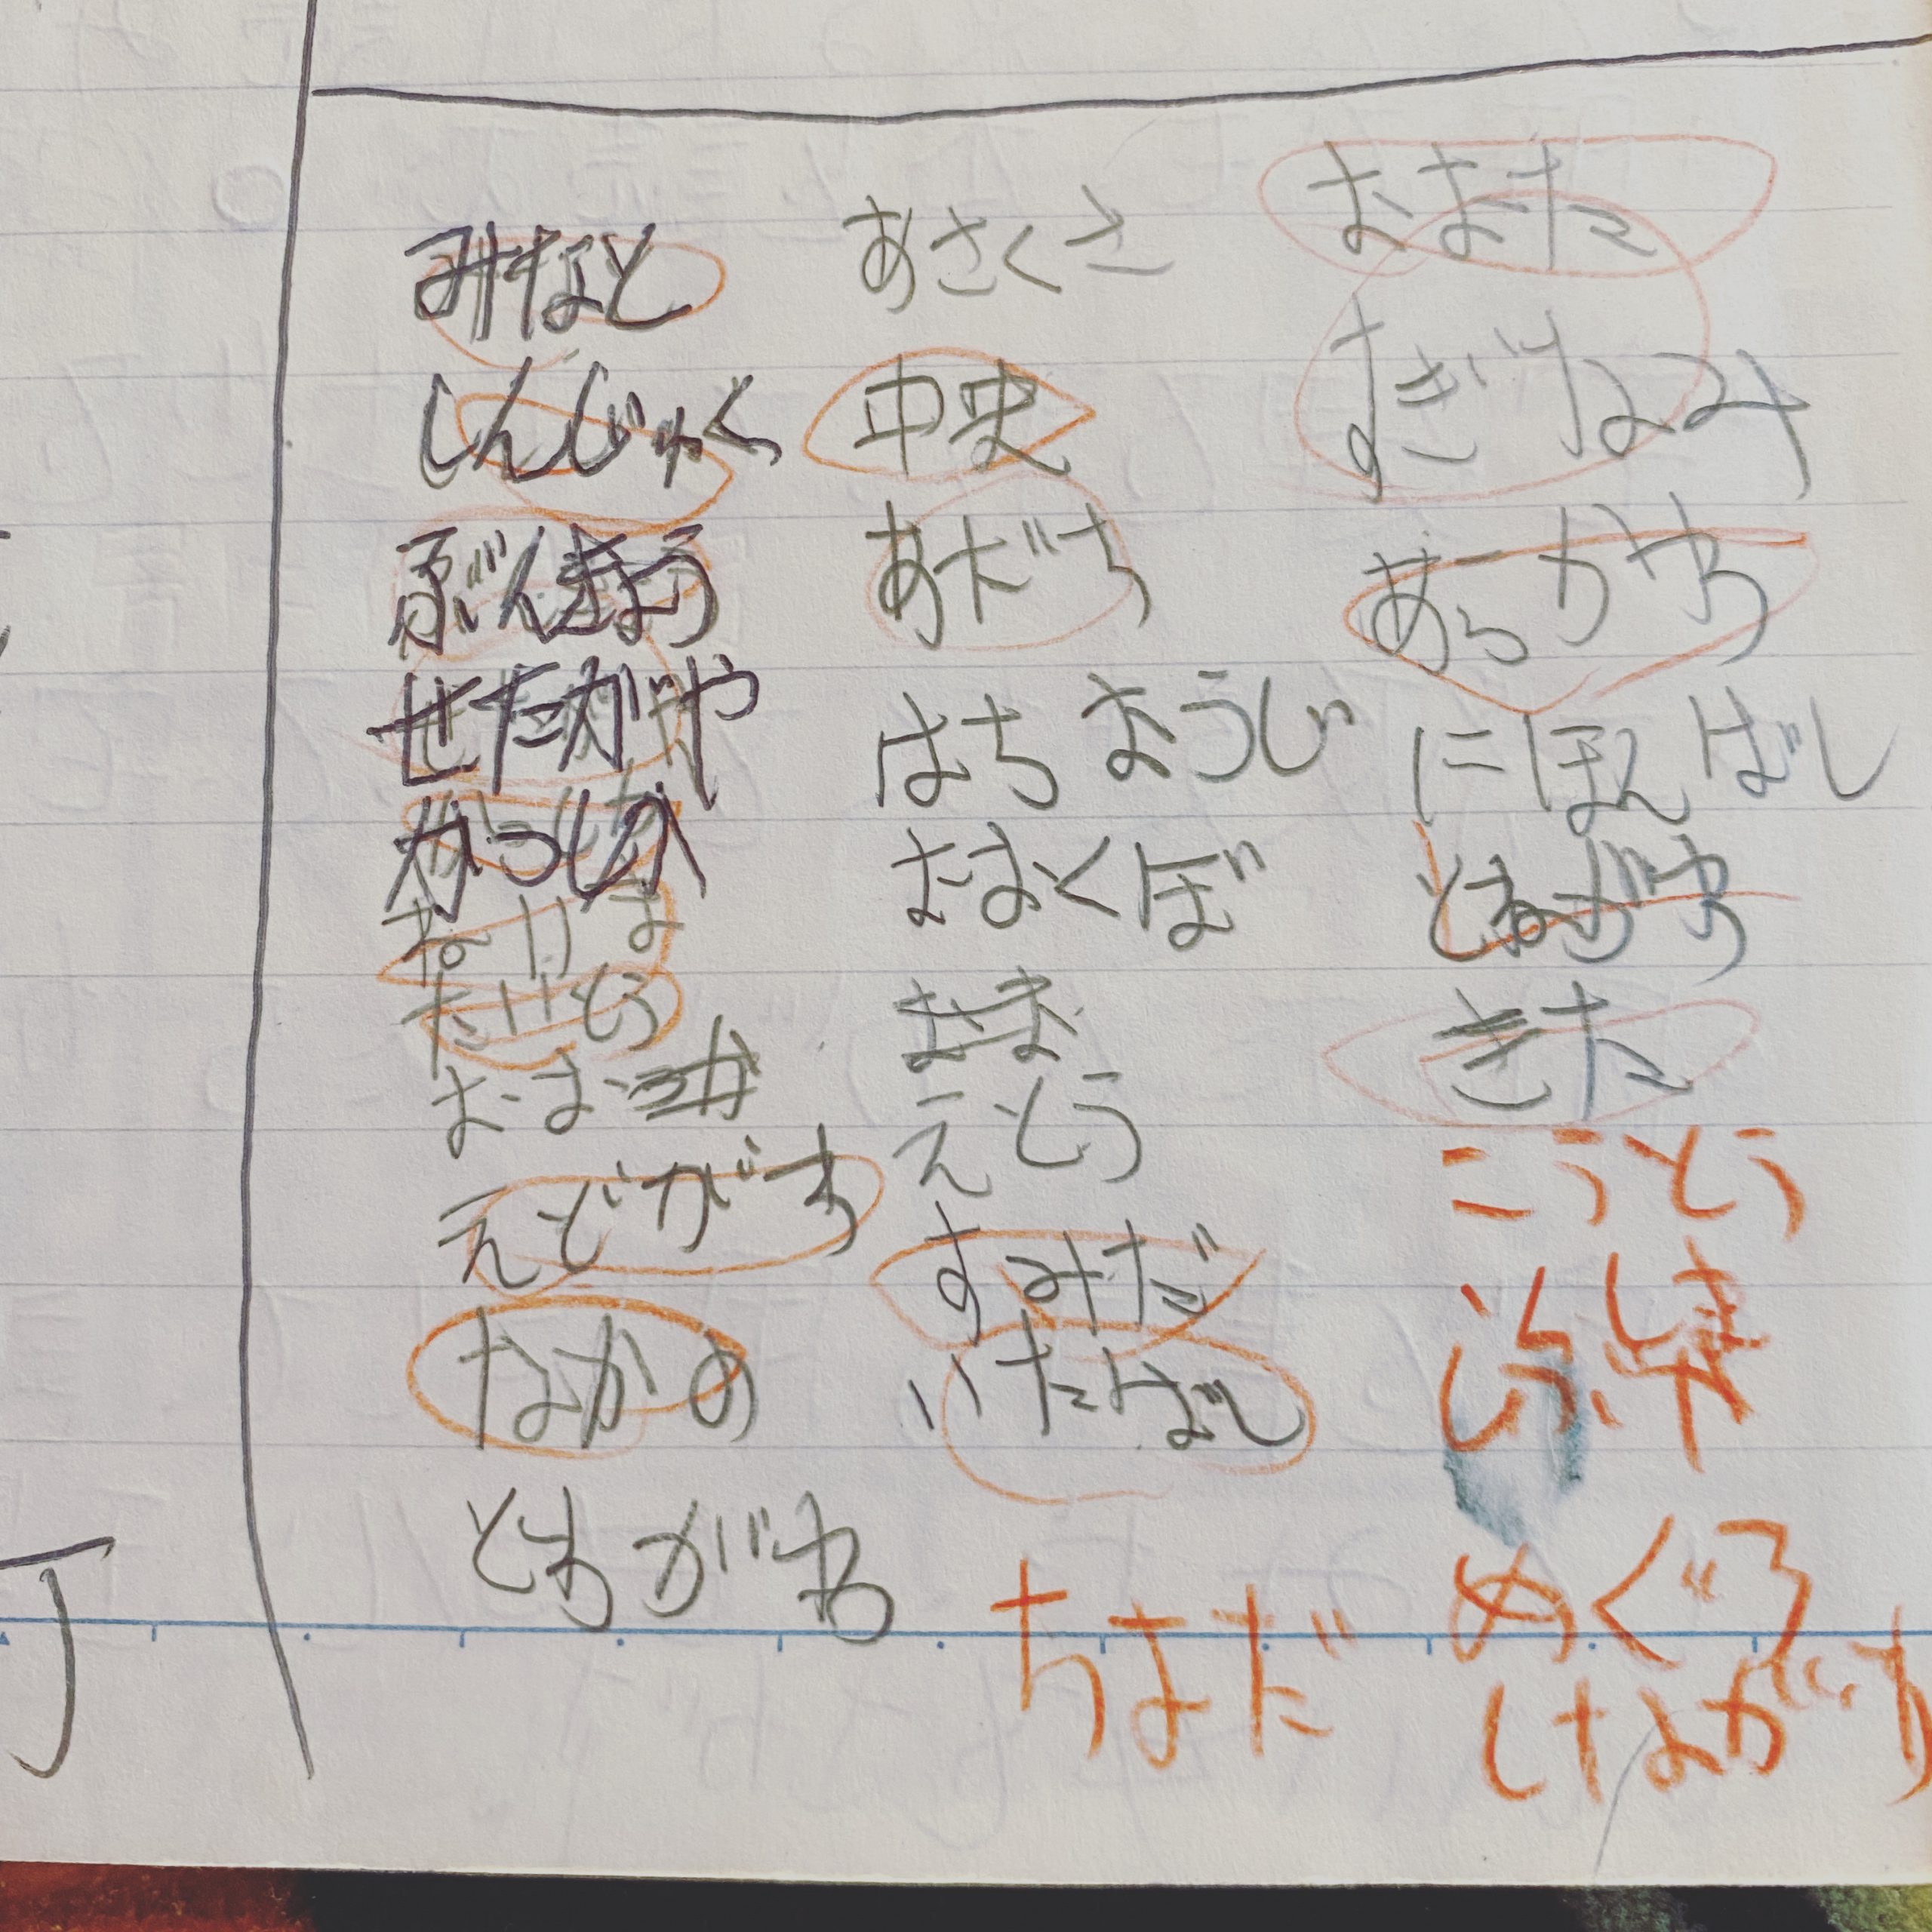 みなと
しんじゅく
ぶんきょう
せたがや
かつしか
ねりま
たいとう
おお
えどがわ
なかの
とねがわ
あさくさ
中央
あだち
はちおうじ
おおくぼ
えとう
すみだ
いたばし
ちよだ
おおた
すぎなみ
あらかわ
にほんばし
とねがわ
きた
こうとう
めぐろ
しながわ